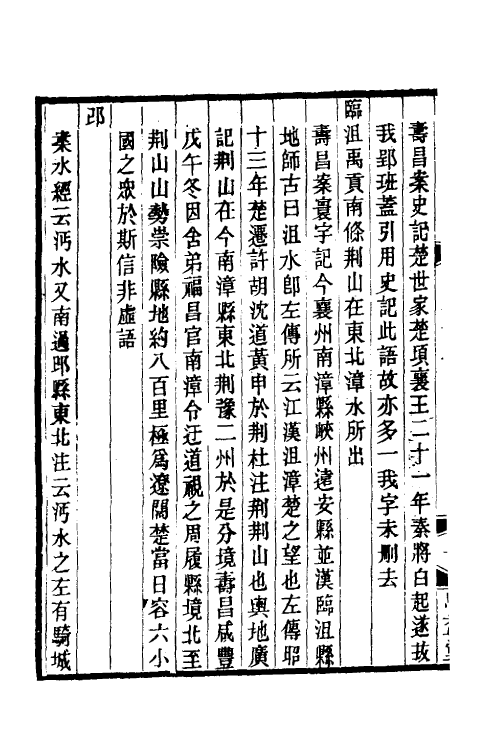 壽昌案史記楚世家楚項襄王二十一年秦將白起遂拔
我郢班蓋引用史記此語故亦多一我字未刪去
臨沮禹貢南條荆山在東北漳水所出
壽昌案寰宇記今襄州南漳縣峽州遠安縣並漢臨沮縣
地師古曰沮水卽左傳所云江漢沮漳楚之望也左傳昭
十三年楚遷許胡沈道黃申於荆杜注荆荆山也輿地廣
記荆山在今南漳縣東北荆豫二州於是分境壽昌咸豐
戊午冬因舍弟福昌官南漳令迂道視之周履縣境北至
荆山山勢祟險縣地約八百里極爲遼闊楚當日容六小
國之衆於斯信非虛語
邔
案水經云沔水又南過邔縣東北注云沔水之左有騎城